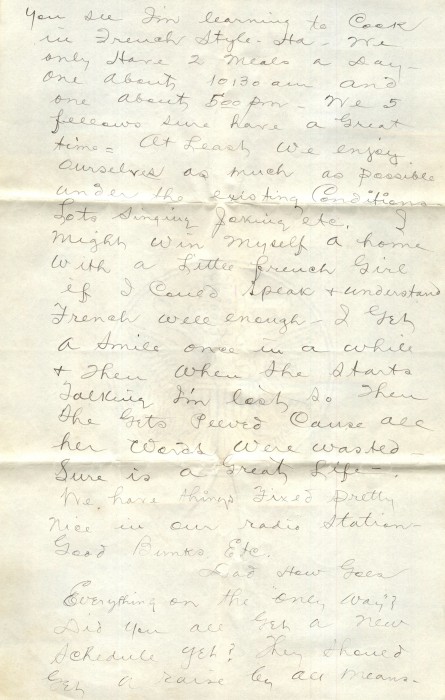 You see I'm learning to Cook
in French Style - Ha - We
only Have 2 Meals a Day -
one About 10:30 am and
one about 5:00 pm - We 5
fellows sure have a Great
time = At Least we enjoy
Ourselves as much as possible
under the existing Conditions
Lots Singing Joking etc. I
Might Win Myself a home
With a Little French Girl
if I Could Speak + understand
French well enough - I Get
a smile once in a while
+ Then When she starts
Talking I'm lost so Then
she Gets Peeved Cause all
her Words Were wasted -
Sure is a Great Life -
We have things Fixed pretty
Nice in our radio Station -
Good Bunks, Etc.
Dad How Goes
Everything on the "only Way"?
Did You all Get a New
Schedule yet? They Should
Get a raise by all Means -